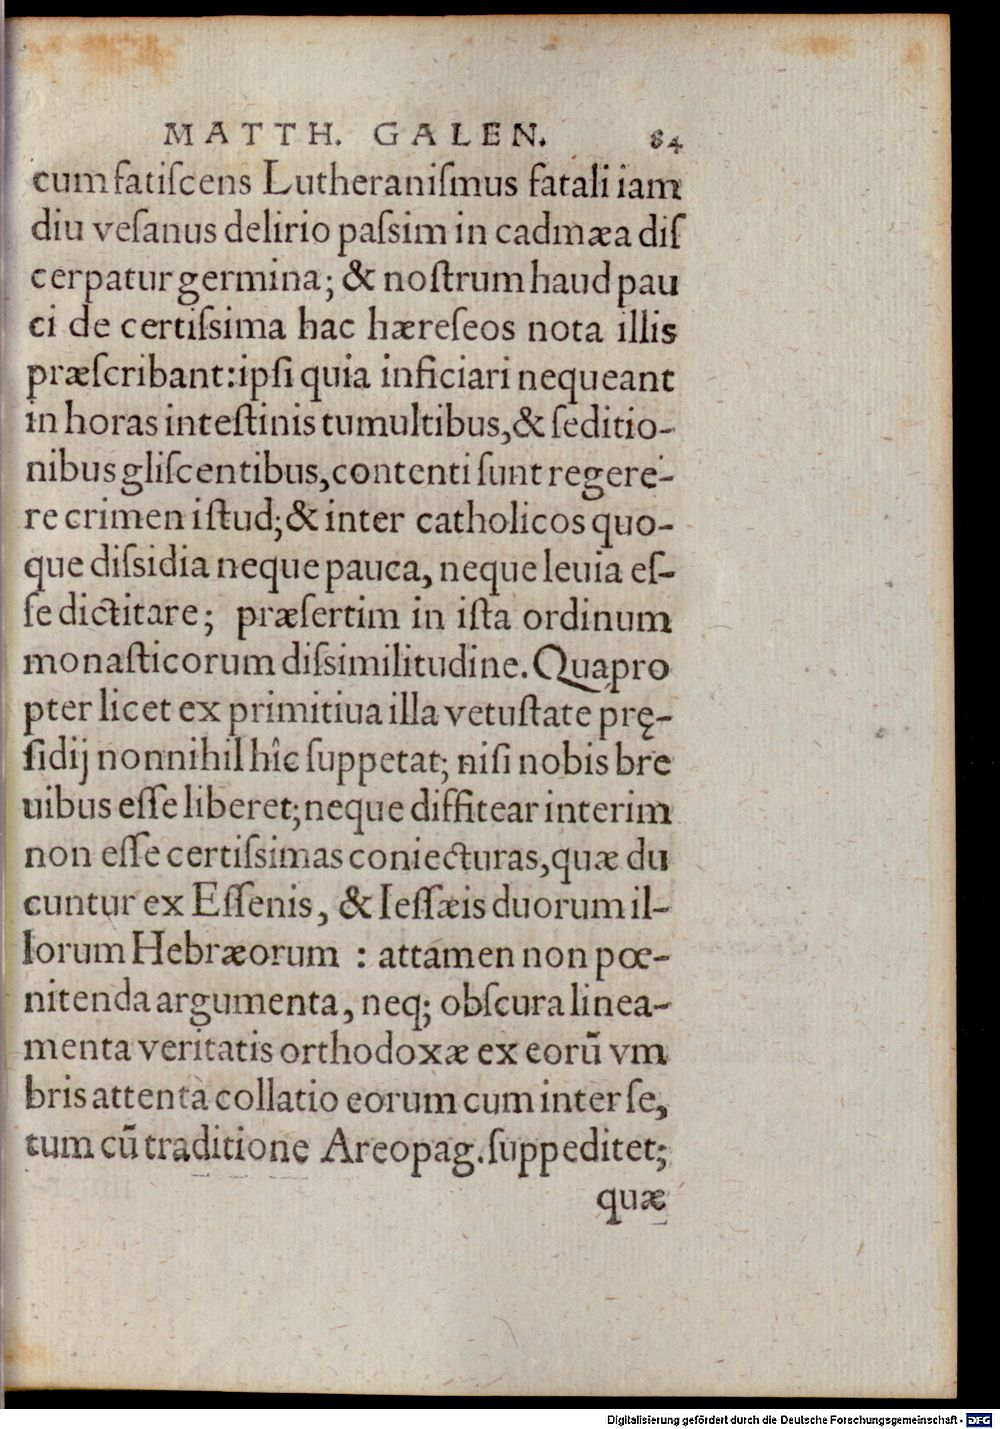 MATTH. GALEN. 84
cum fatiſcens Lutheraniſmus fatali iam
diu veſanus delirio paſsim in cadmæa diſ
cerpatur germina; & noſtrum haud pau
ci de certiſsima hac hæreſeos nota illis
præſcribant: ipſi quia inficiari nequeant
in horas inteſtinis tumultibus, & ſeditio-
nibus gliſcentibus, contenti ſunt regere-
re crimen iſtud; & inter catholicos quo-
que diſsidia neque pauca, neque leuia eſ-
ſe dictitare; præſertim in iſta ordinum
monaſticorum diſsimilitudine. Quapro
pter licet ex primitiua illa vetuſtate prę-
ſidij nonnihil hîc ſuppetat; niſi nobis bre
uibus eſſe liberet; neque diffitear interim
non eſſe certiſsimas coniecturas, quæ du
cuntur ex Eſſenis, & Ieſſæis duorum il-
lorum Hebræorum : attamen non pœ-
nitenda argumenta, neq; obſcura linea-
menta veritatis orthodoxæ ex eorũ vm
bris attenta collatio eorum cum inter ſe,
tum cũ traditione Areopag. ſuppeditet;
quæ
Digitalisierung gefördert durch die Deutsche Forschungsgemeinschaft - DFG